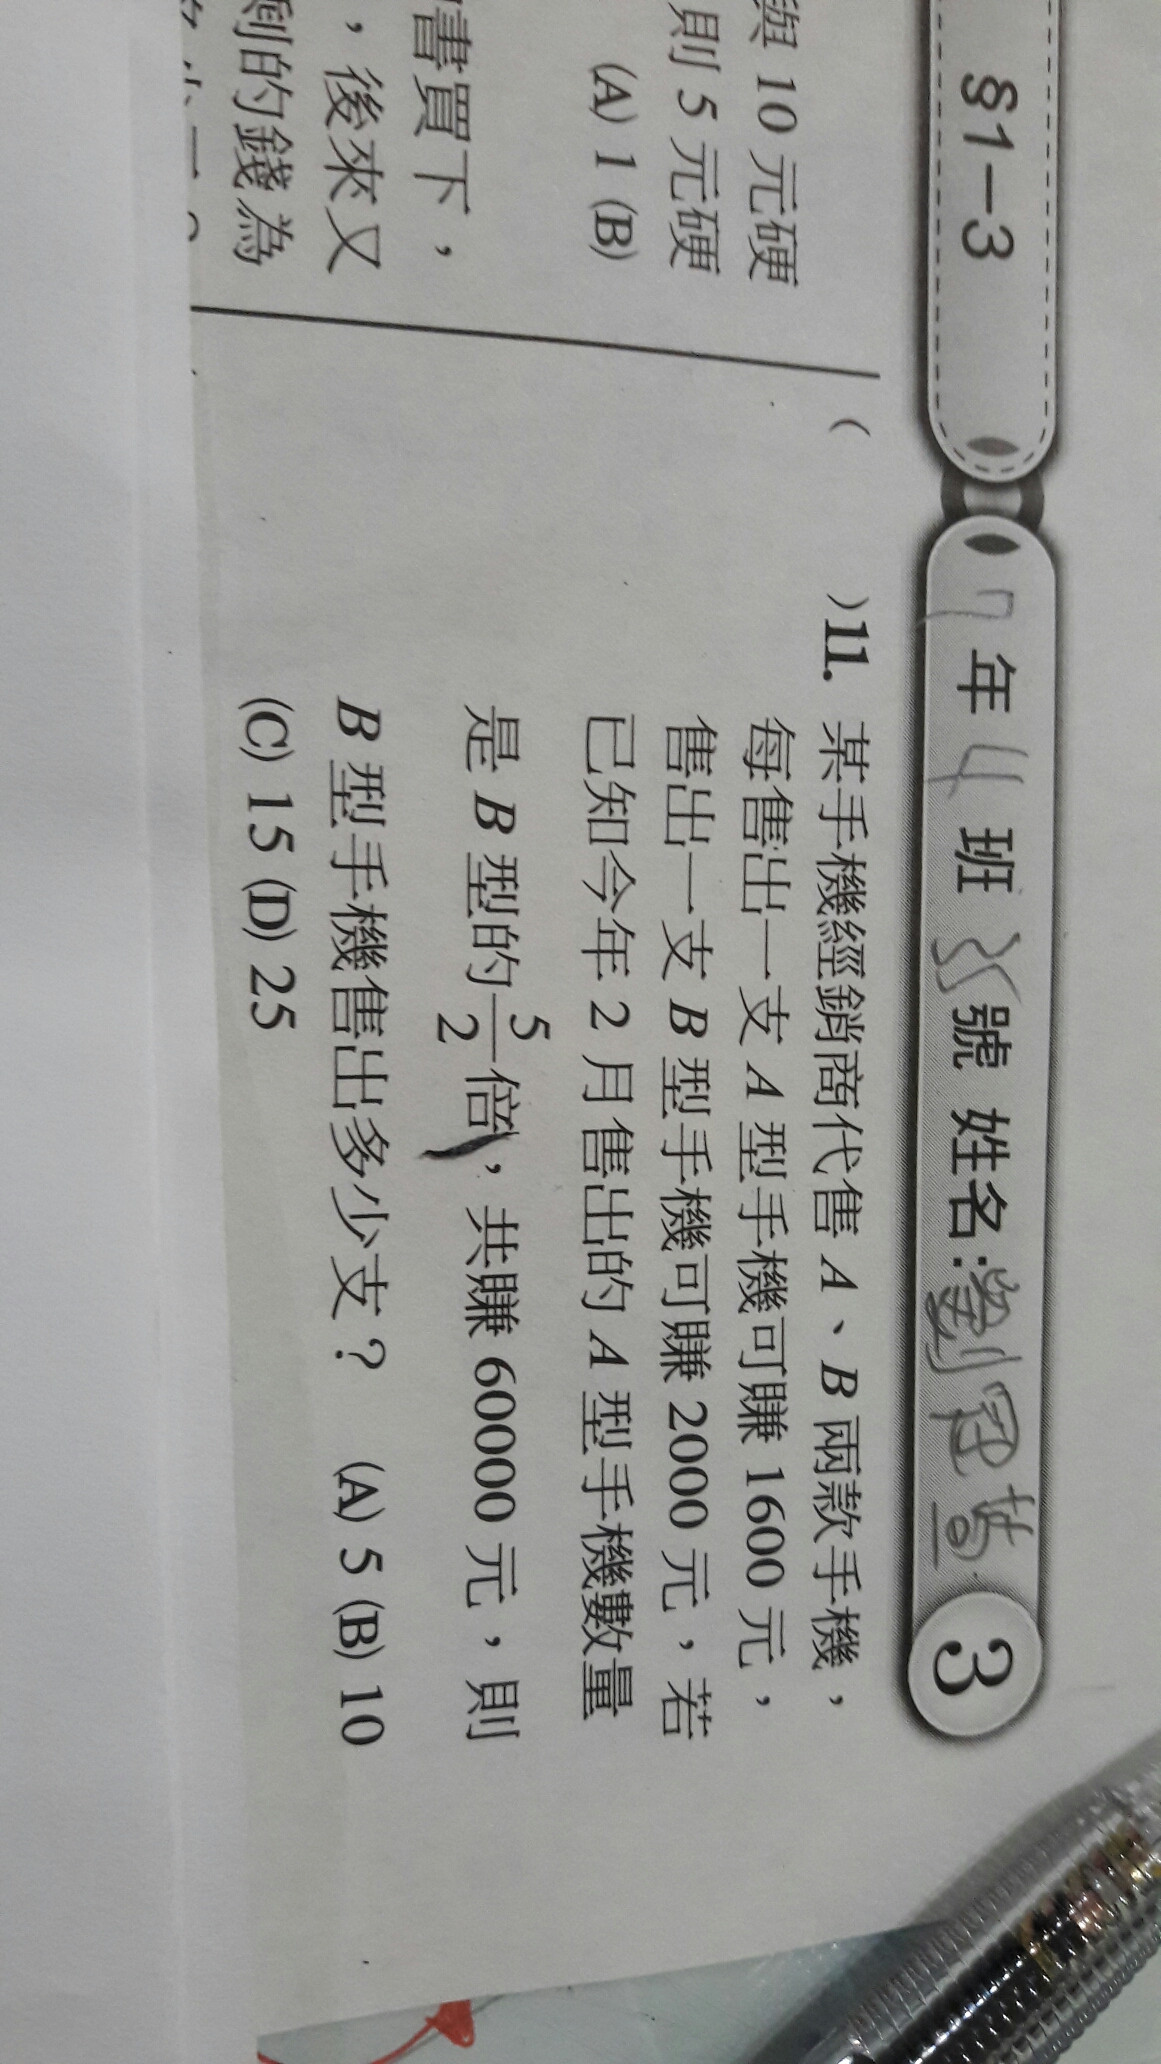 §1-3
7年4班 號 姓名:劉冠 3
與 10 元硬
則 5 元硬
(A) 1 (B)
書買下，
，後來又
剩的錢為
( )11. 某手機經銷商代售 A、B 兩款手機，
每售出一支 A 型手機可賺 1600 元，
售出一支 B 型手機可賺 2000 元，若
已知今年 2 月售出的 A 型手機數量
是 B 型的 5/2 倍，共賺 60000 元，則
B 型手機售出多少支？ (A) 5 (B) 10
(C) 15 (D) 25